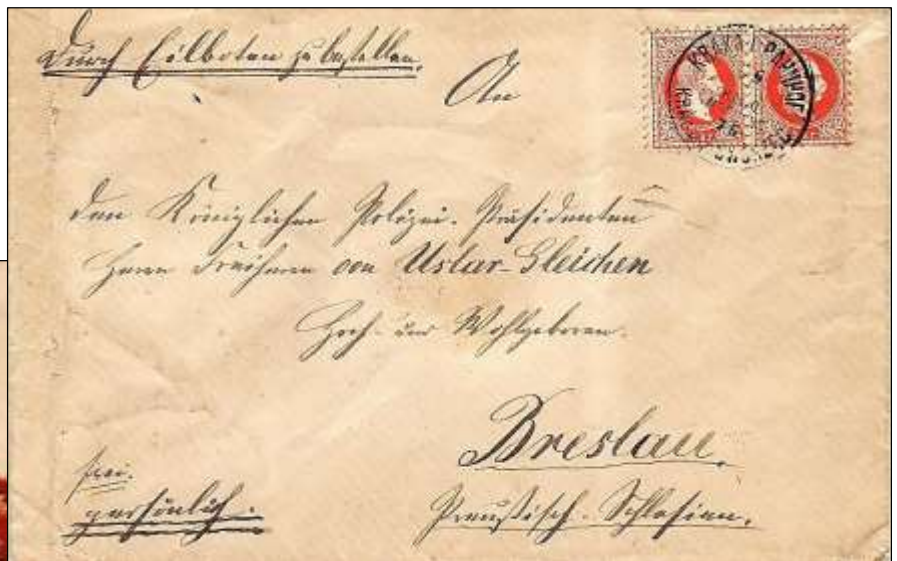 Durch Eilboten zu bestellen.
An
den Königlichen Polizei-Präsidenten
Herrn Freiherrn von Uslar-Gleichen
Hoch- und Wohlgeboren.
Breslau.
Preußisch-Schlesien.
frei.
persönlich.
KRAKAU BAHNHOF